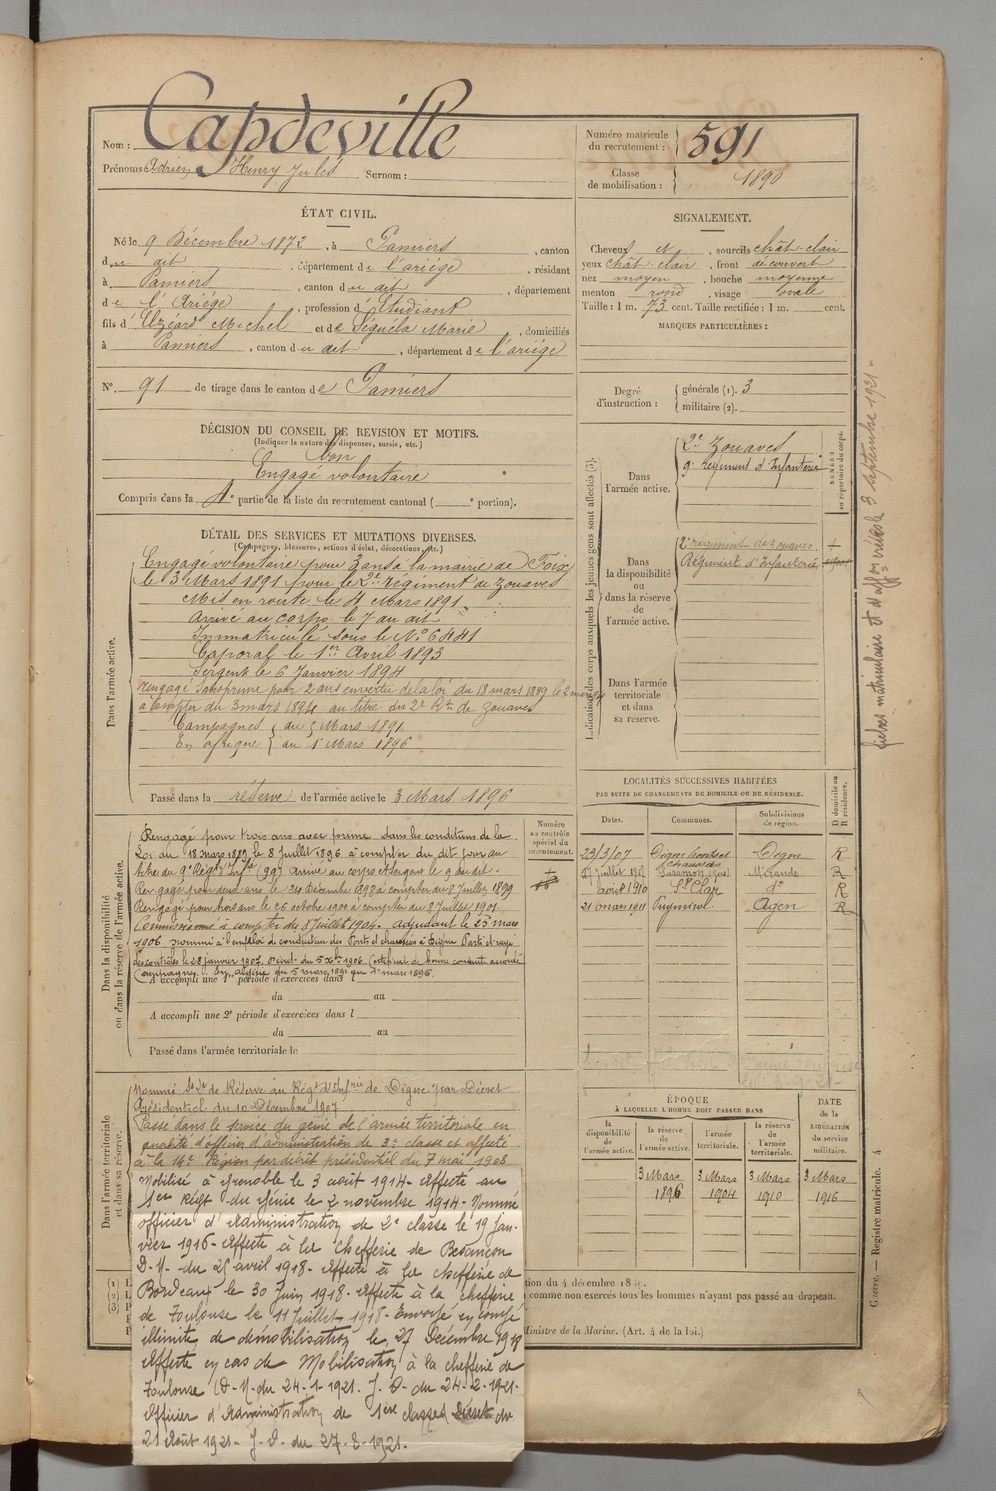 Nom : Capdeville
Prénoms Adrien Henry Jules Surnom :
Numéro matricule du recrutement : 591
Classe de mobilisation : 1890
ÉTAT CIVIL.
Né le 9 Décembre 1872, à Pamiers, canton
du dit, département de l'ariège, résidant
à Pamiers, canton du dit, département
de l'Ariège, profession d'Etudiant
fils d'Uzéard Michel et de Séguéla Marie, domiciliés
à Pamiers, canton du dit, département de l'ariège
N° 91 de tirage dans le canton de Pamiers
DÉCISION DU CONSEIL DE REVISION ET MOTIFS.
(Indiquer la nature des dispenses, sursis, etc.)
bon
Engagé volontaire
Compris dans la 1e partie de la liste du recrutement cantonal ( e portion).
SIGNALEMENT.
Cheveux et, sourcils chât-clair
yeux chât-clair, front découvert
nez moyen, bouche moyenne
menton rond, visage ovale
Taille : 1 m. 73 cent. Taille rectifiée : 1 m. cent.
MARQUES PARTICULIÈRES :
Degré d'instruction : générale (1). 3
militaire (2).
DÉTAIL DES SERVICES ET MUTATIONS DIVERSES.
(Campagnes, blessures, actions d'éclat, décorations, etc.)
Dans l'armée active.
Engagé volontaire pour 3 ans à la mairie de Foix
le 3 Mars 1891 pour le 2e régiment de Zouaves
Mis en route le 4 Mars 1891
Arrivé au corps le 7 au dit
Immatriculé sous le N° 6441
Caporal le 1er Avril 1893
Sergent le 6 Janvier 1894
rengagé sans prime pour 2 ans en vertu de la loi du 18 mars 1889 le 2 mars 94
à compter du 3 mars 1894 au titre du 2e Rt de Zouaves
Campagnes { du 5 Mars 1891
En afrique } au 1 Mars 1896
Passé dans la réserve de l'armée active le 3 Mars 1896
Indication des corps auxquels les jeunes gens sont affectés (3).
Dans l'armée active.
2e Zouaves
9e régiment d'Infanterie
NUMÉRO au répertoire du corps.
Dans la disponibilité ou dans la réserve de l'armée active.
2e régiment de zouaves
Régiment d'Infanterie
Dans l'armée territoriale et dans sa réserve.
fiches matriculaire et d'aff
le 3 septembre 1921 -
LOCALITÉS SUCCESSIVES HABITÉES
PAR SUITE DE CHANGEMENTS DE DOMICILE OU DE RÉSIDENCE.
Dates. Communes. Subdivisions de région. D domicile ou R résidence.
23/3/07 Digne ponts et chaussées Digne R
Juillet Saramon (Gers) Mirande R
août 1910 St Clar do R
21 mars 1911 Puymirol Agen R
Dans la disponibilité ou dans la réserve de l'armée active.
Numéro au contrôle spécial du recrutement.
Rengagé pour trois ans avec prime dans les conditions de la
Loi du 18 mars 1889 le 8 Juillet 1896 à compter du dit jour au
titre du 9e Régt d'Infie (99) Arrivé au corps et sergent le 9 au dit.
Rengagé pour deux ans le 24 Décembre 1898 à compter du 8 Juillet 1899
Rengagé pour trois ans le 26 octobre 1900 à compter du 8 Juillet 1901
Commissionné à compter du 8 Juillet 1904. adjudant le 23 mars
1906 nommé à l'emploi de conducteur des Ponts et chaussées à Digne Parti et rayé
des contrôles le 28 janvier 1907. Certificat de bonne conduite accordé
Campagnes : En Afrique du 5 mars 1891 au 1er mars 1896
A accompli une 1re période d'exercices dans l
du au
A accompli une 2e période d'exercices dans l
du au
Passé dans l'armée territoriale le
Dans l'armée territoriale et dans sa réserve.
Nommé Ss Lt de Réserve au Régt d'Infrie de Digne par Décret
Présidentiel du 10 Décembre 1907
Passé dans le service du génie de l'armée territoriale en
qualité d'officier d'administration de 3e classe et affecté
à la 14e Région par décret présidentiel du 7 mai 1908
Mobilisé à Grenoble le 3 août 1914 - Affecté au
1er Régt du Génie le 2 novembre 1914 - Nommé
officier d'Administration de 2e classe le 19 jan-
vier 1916 - Affecté à la chefferie de Besançon
D.M. du 25 avril 1918 - Affecté à la chefferie de
Bordeaux le 30 Juin 1918 - Affecté à la chefferie
de Toulouse le 11 Juillet 1918 - Envoyé en congé
illimité de démobilisation le 27 Décembre 1918
Affecté en cas de Mobilisation à la chefferie de
Toulouse (D.M. du 24-1-1921. J.O. du 24-2-1921.
Officier d'Administration de 1ère classe Décret du
21 Août 1921 - J.O. du 27-8-1921.
ÉPOQUE
À LAQUELLE L'HOMME DOIT PASSER DANS
la disponibilité de l'armée active. la réserve de l'armée active. l'armée territoriale. la réserve de l'armée territoriale. DATE de la LIBÉRATION du service militaire.
3 Mars 1896 3 Mars 1904 3 Mars 1910 3 Mars 1916
(1) L
(2)
(3)
tion du 4 décembre 18
comme non exercés tous les hommes n'ayant pas passé au drapeau.
Ministre de la Marine. (Art. 4 de la loi.)
Guerre. — Registre matricule. 4